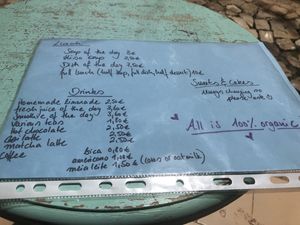 Lunch
Soup of the day 3€
Miso Soup 3,50€
Dish of the day 7,50€
full lunch (half soup, full dish, half dessert) 10€
Sweets & Cakes
always changing so
please look ☺
Drinks
Homemade limonade 2,50€
fresh juice of the day 3,60€
Smoothie of the day 3,60€
various teas 1,80€
hot chocolate 2,50€
chai latte 2,50€
matcha latte 2,50€
Coffee
bica 0,80€
americano 1,00€
meia leite 1,50€
All is 100% organic